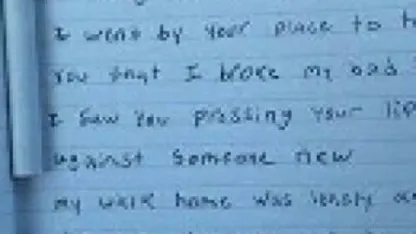 I went by your place to
you that I broke my
I saw you pressing your
against someone new
my walk home was lonely